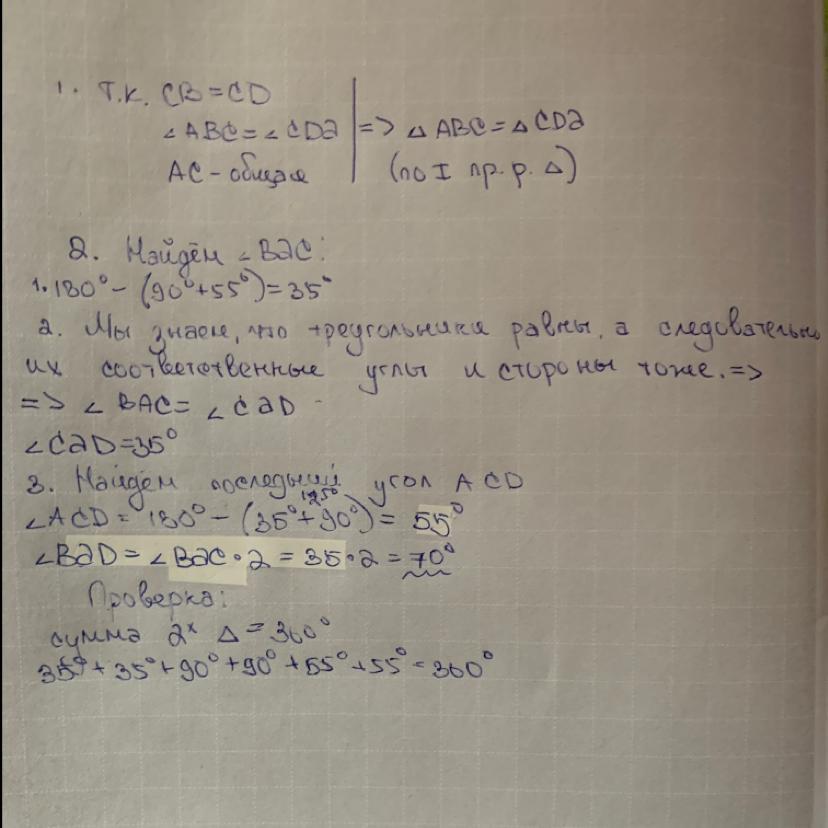 1. Т.к. CB=CD
∠ABC=∠CDA => △ABC=△CDA
AC-общая (по I пр. р. △)
2. Найдём ∠BAC:
1. 180°-(90°+55°)=35°
2. Мы знаем, что треугольники равны, а следовательно
их соответственные углы и стороны тоже. =>
=> ∠BAC=∠CAD
∠CAD=35°
3. Найдём последний угол ACD
125°
∠ACD=180°-(35°+90°)=55°
∠BAD=∠BAC·2=35·2=70°
Проверка:
сумма 2х △=360°
35°+35°+90°+90°+55°+55°=360°